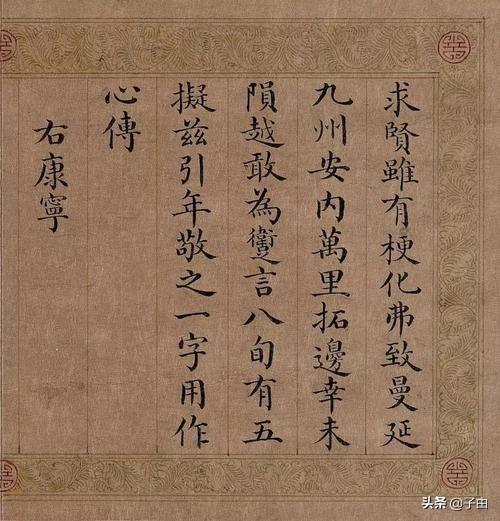 求賢雖有梗化弗致曼延
九州安内萬里拓邊幸未
隕越敢為躗言八旬有五
擬兹引年敬之一字用作
心傳
右康寧
头条 @子由